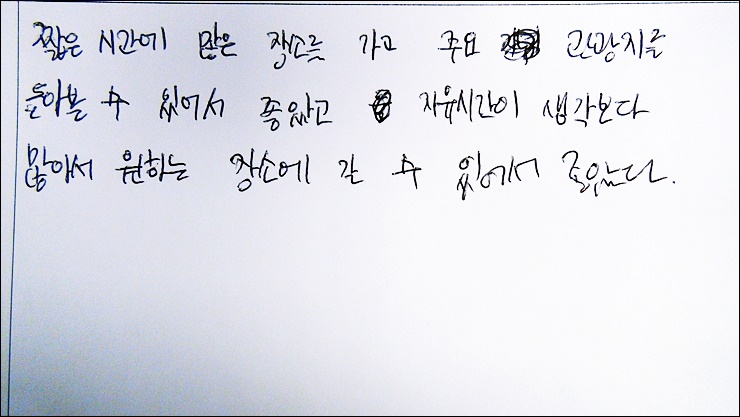 짧은 시간에 많은 장소를 가고 주요 관광지를
돌아볼 수 있어서 좋았고 자유시간이 생각보다
많아서 원하는 장소에 갈 수 있어서 좋았다.